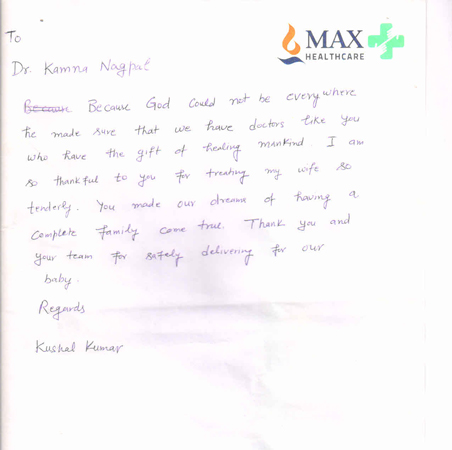 To
MAX
HEALTHCARE
Dr. Kamna Nagpal
Because Because God could not be everywhere
he made sure that we have doctors like you
who have the gift of healing mankind. I am
so thankful to you for treating my wife so
tenderly. You made our dreams of having a
complete family come true. Thank you and
your team for safely delivering for our
baby.
Regards
Kushal Kumar